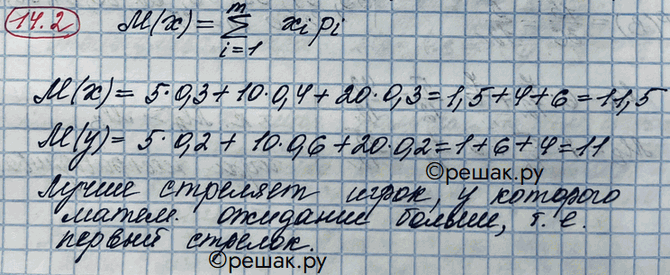 14.2 M(x) = m∑i=1 xi pi
M(x) = 5·0,3+10·0,4+20·0,3=1,5+4+6=11,5
M(y) = 5·0,2+10·0,6+20·0,2=1+6+4=11
©решак.ру
Лучше стреляет игрок, у которого
матем. ожидание больше, т.е.
первый стрелок.
©решак.ру